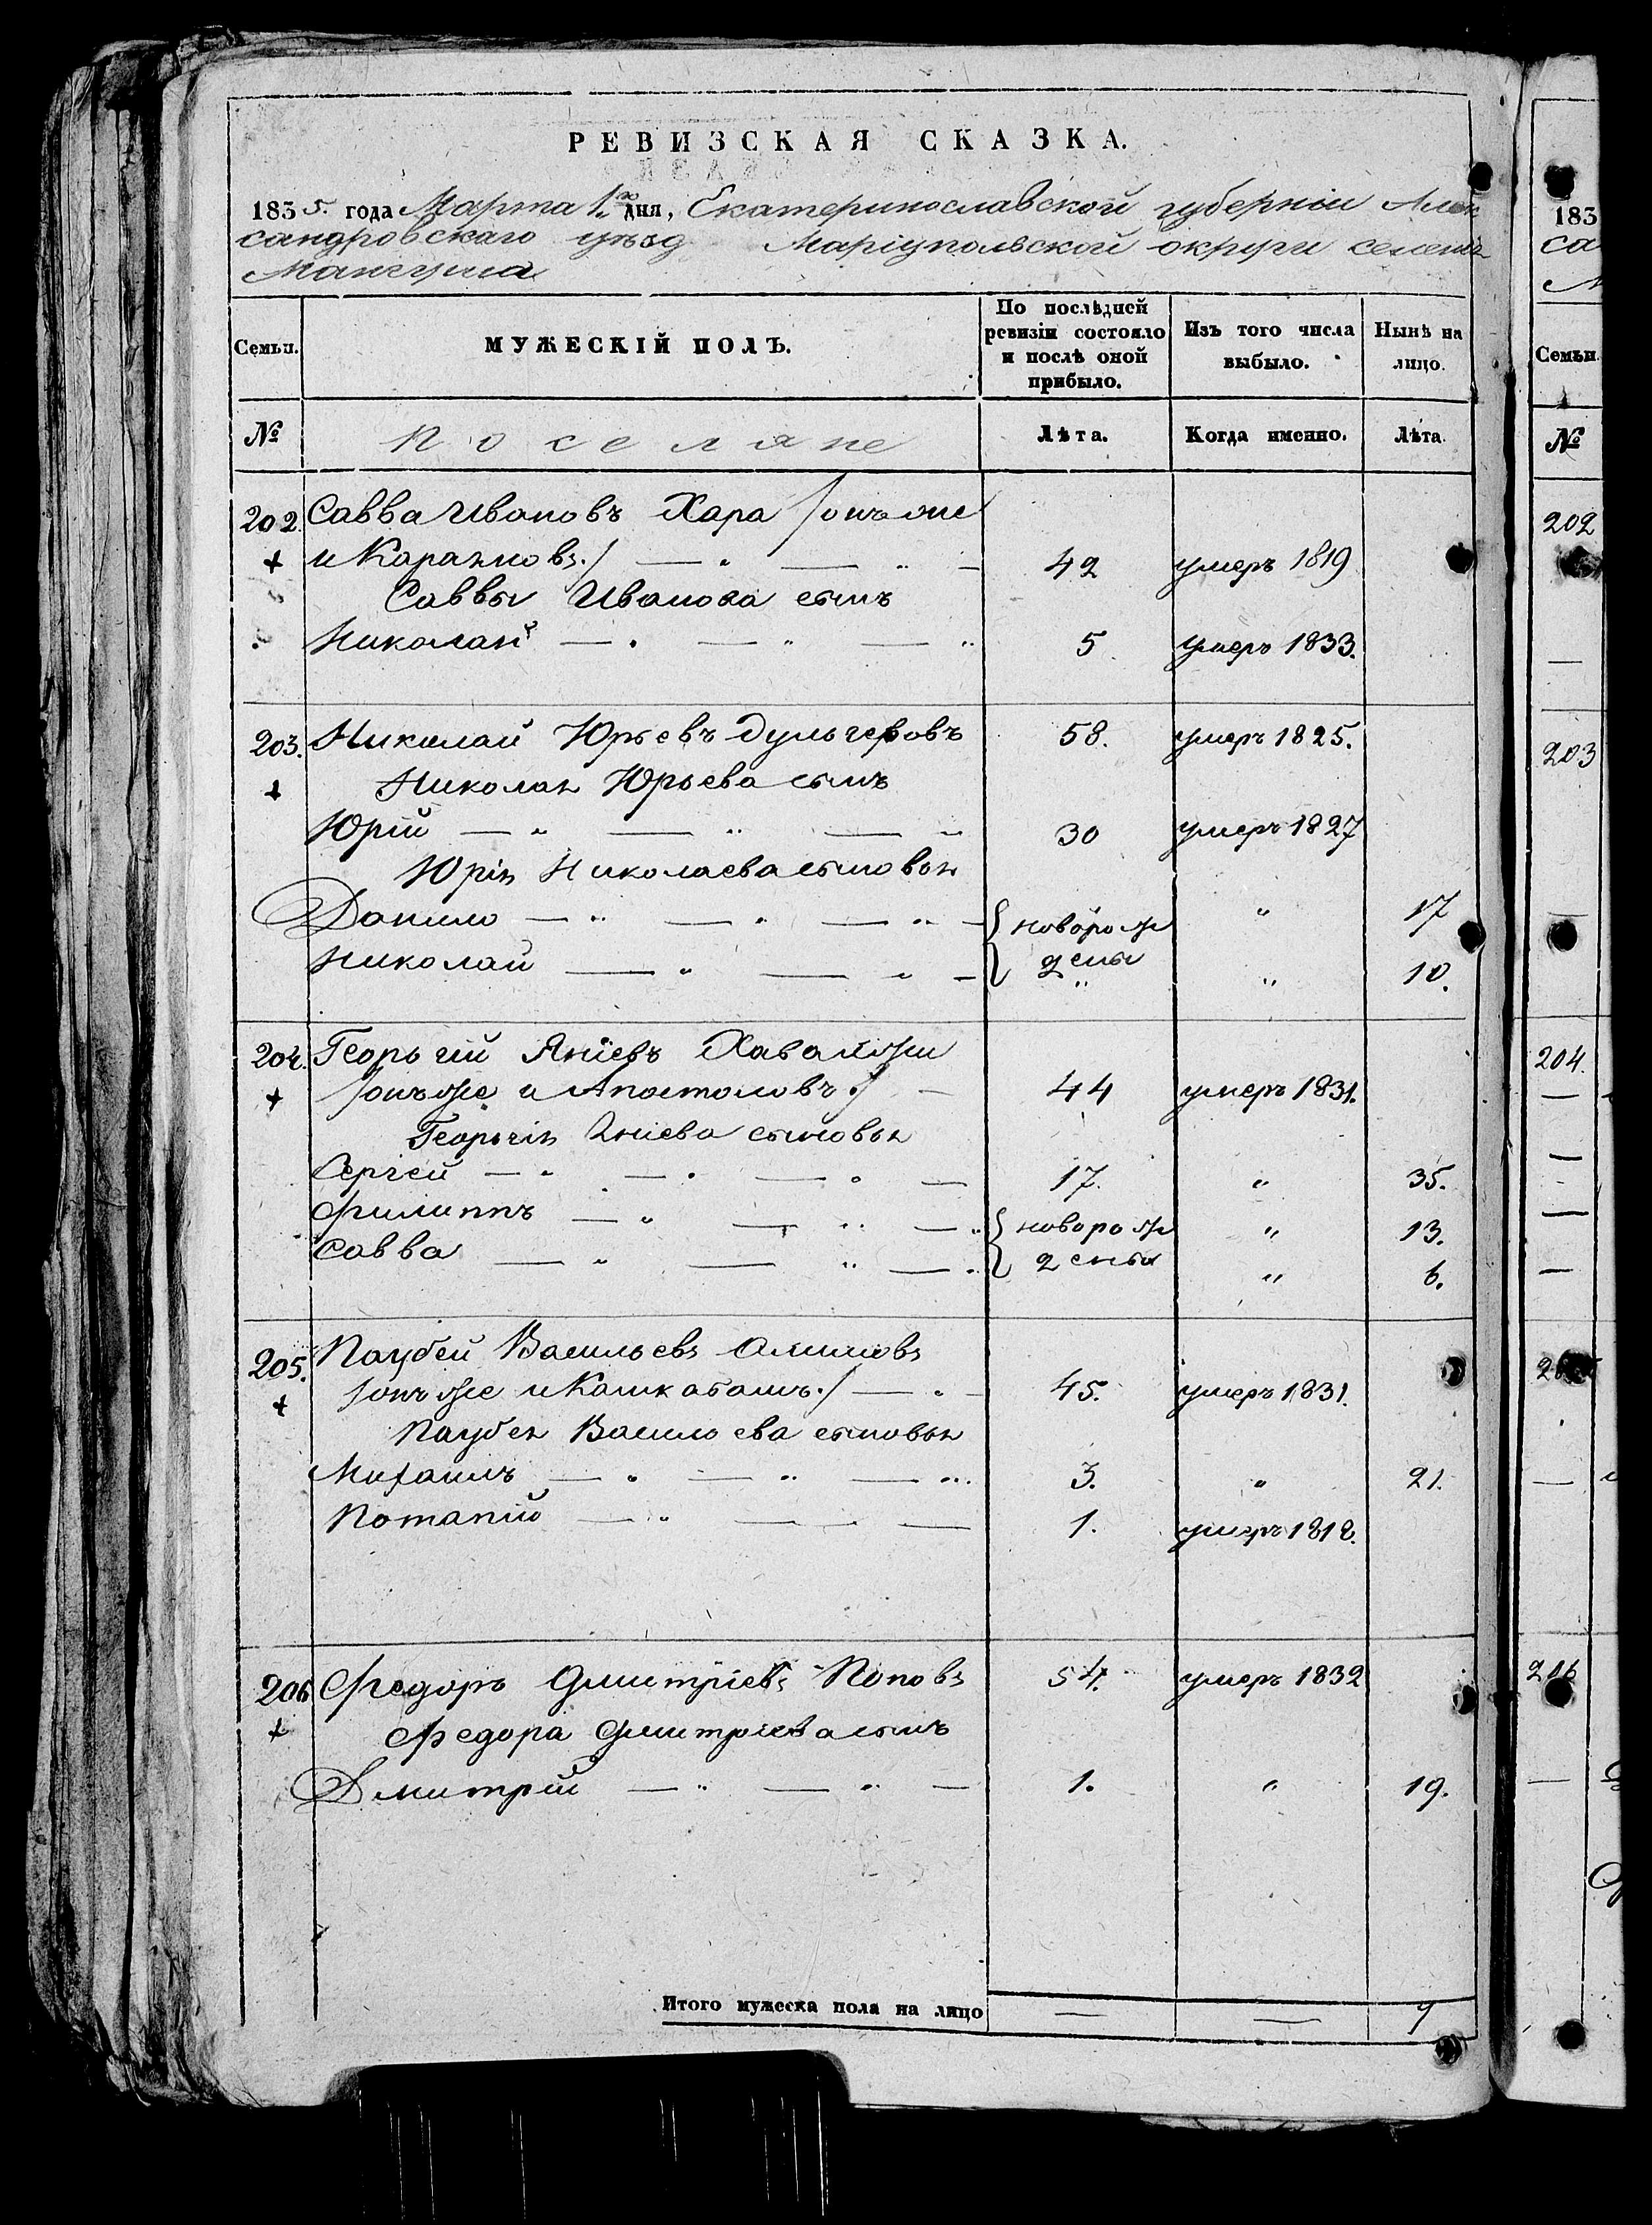 РЕВИЗСКАЯ СКАЗКА.
1835. года Марта 1го дня, Екатеринославской губерніи Алек
сандровскаго уѣзд Маріупольской округи селенія
Мангуша
Семьи.
МУЖЕСКІЙ ПОЛЪ.
По послѣдней ревизіи состояло и послѣ оной прибыло.
Изъ того числа выбыло.
Нынѣ на лицо.
№ Поселяне Лѣта. Когда именно. Лѣта.
202. Савва Ивановъ Хара /онъ же
и Каразновъ./ — " — " — 42 умеръ 1819
Саввы Иванова сынъ
Николай — " — " — " 5 умеръ 1833.
203. Николай Юрьевъ Дульгеровъ 58. умеръ 1825.
Николая Юрьева сынъ
Юрій — " — " — " 30 умеръ 1827
Юрія Николаева сыновья
Данило — " — " — " — новорож " 17
Николай — " — " — дены " " 10.
204. Георгій Яніевъ Хаваджи
/онъ же и Апостоловъ./ — 44 умеръ 1831.
Георгія Яніева сыновья
Сергей — " — " — " — 17. " 35.
Филиппъ — " — " — " новорож " 13.
Савва — " — " — " дены " 6.
205. Паубей Васильевъ
/онъ же и Кашкабашъ./ — " — 45. умеръ 1831.
Паубея Васильева сыновья
Михаилъ — " — " — " 3. " 21.
Потапій — " — " — 1. умеръ 1818.
206 Федоръ Дмитріевъ Поповъ 54. умеръ 1832
Федора Дмитріева сынъ
Дмитрій — " — " — 1. " 19.
Итого мужеска пола на лицо — — 7
183
са
Семьи
№
202
203
204.
206